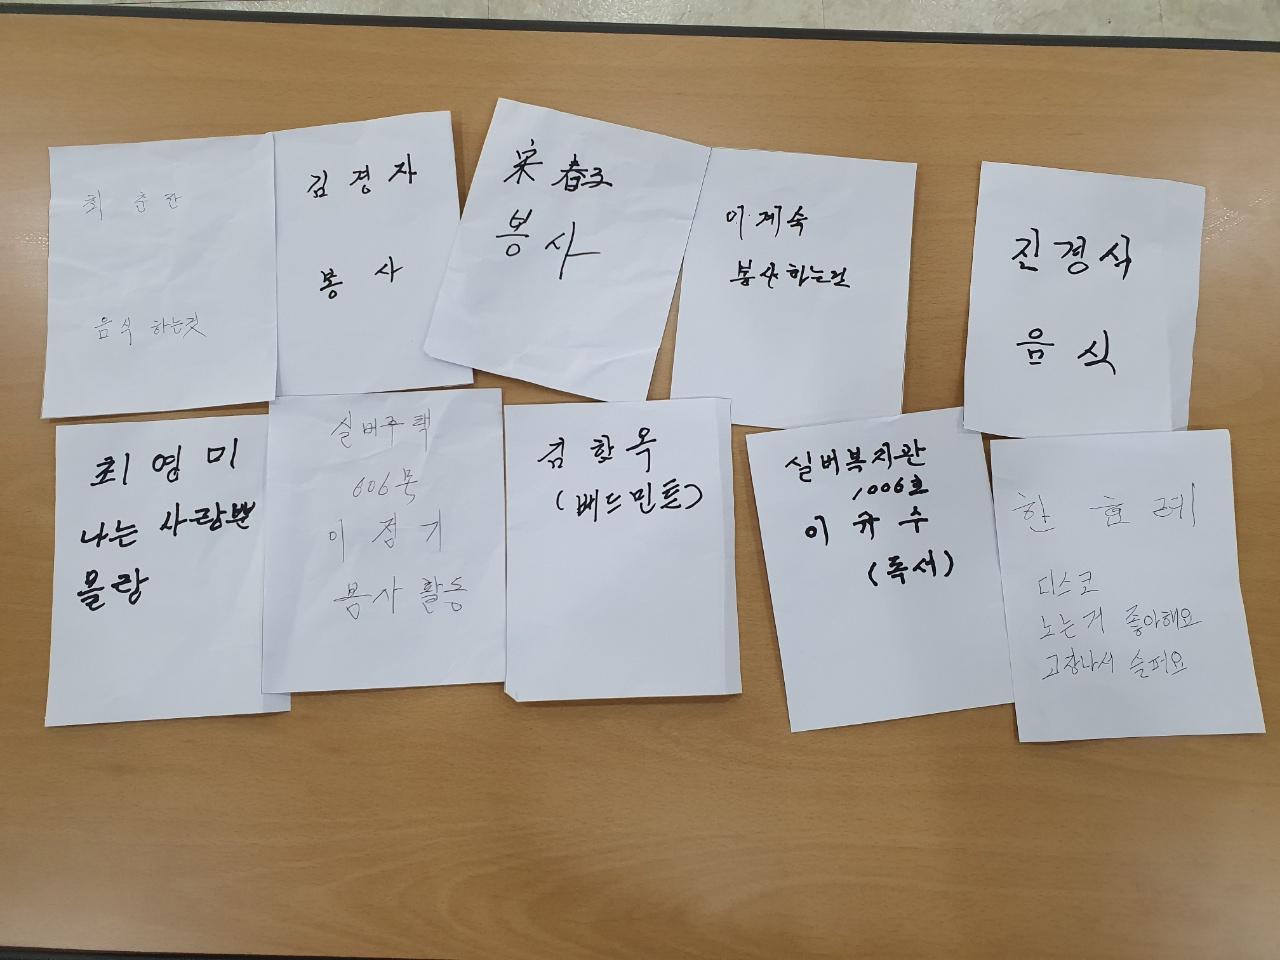 최 춘 란
음식 하는것
김 경 자
봉 사
宋 春子
봉사
이계숙
봉사하는건
진경식
음 식
최 영 미
나는 사랑뿐
몰랑
실버주택
606목
이 점 기
봄사 활동
김 핫 옥
(배드민튼)
실버복지관
1006호
이 규 수
(독서)
한 효 례
디스코
노는거 좋아해요
고장나서 슬퍼요